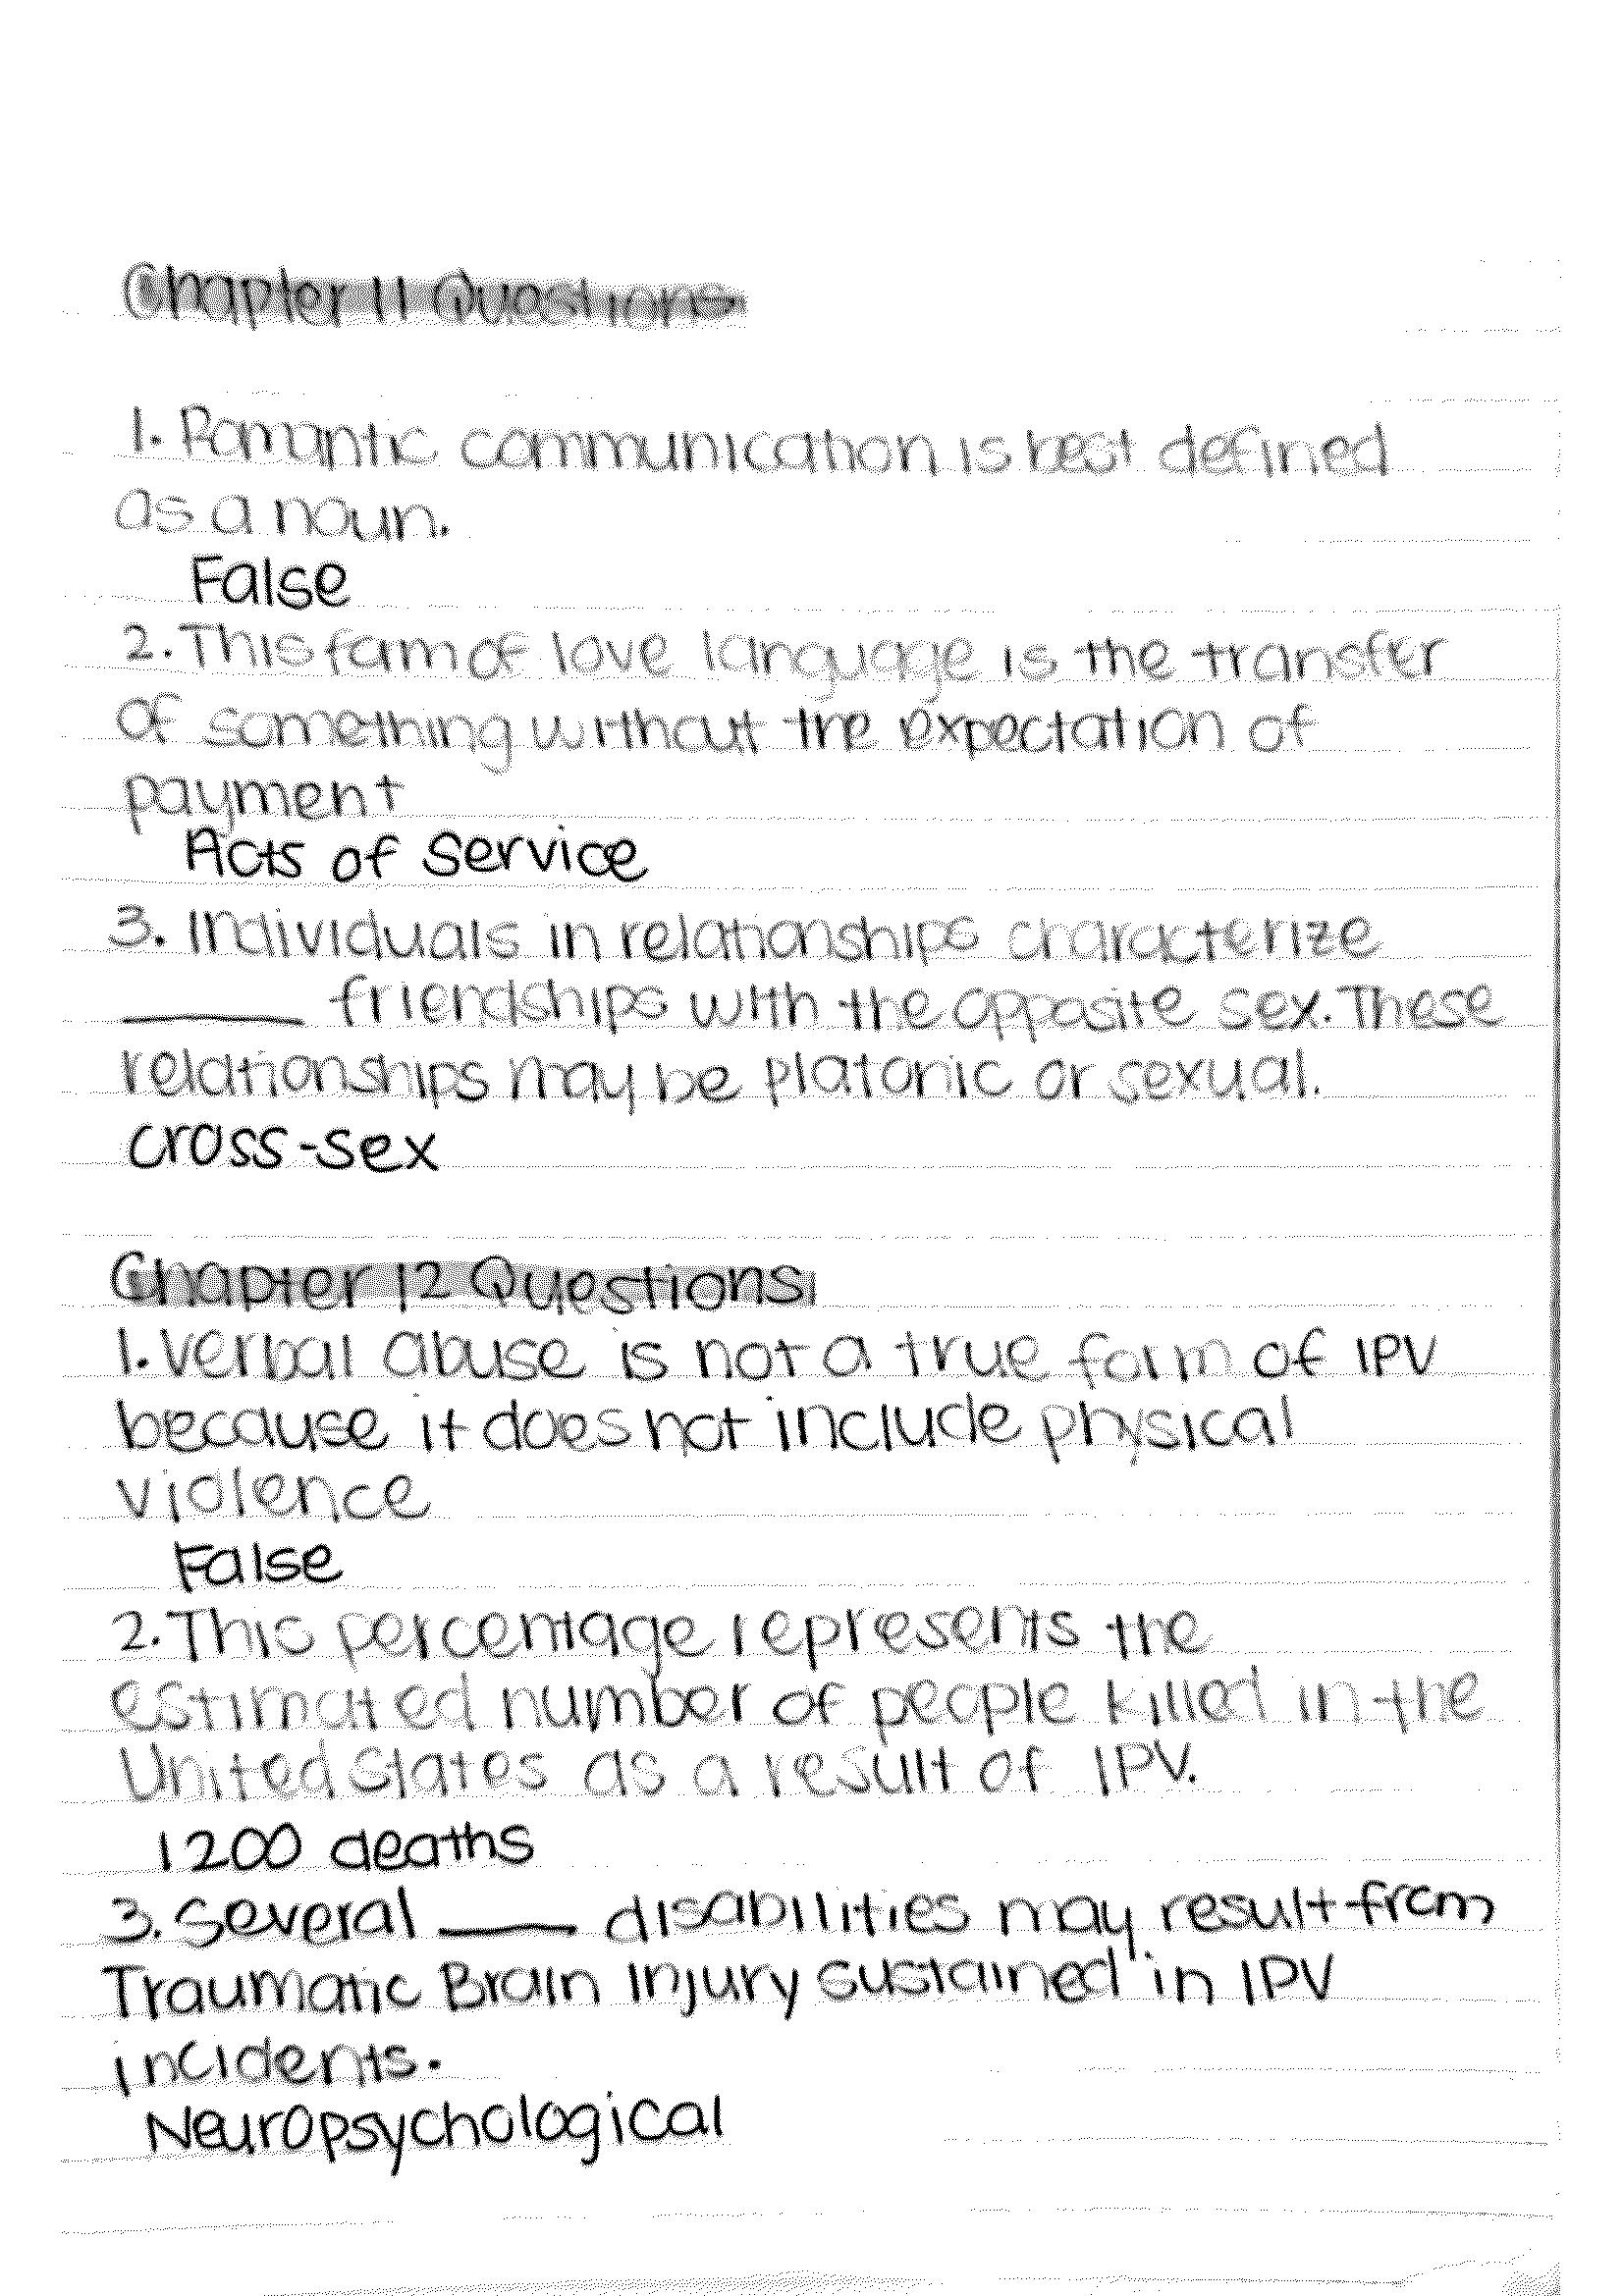 Chapter 11 Questions
1. Romantic communication is best defined
as a noun.
False
2. This form of love language is the transfer
of something without the expectation of
payment
Acts of Service
3. Individuals in relationships characterize
______ friendships with the opposite sex. These
relationships may be platonic or sexual.
cross-sex
Chapter 12 Questions
1. Verbal abuse is not a true form of IPV
because it does not include physical
violence
False
2. This percentage represents the
estimated number of people killed in the
United States as a result of IPV.
1200 deaths
3. Several ____ disabilities may result from
Traumatic Brain Injury sustained in IPV
incidents.
Neuropsychological